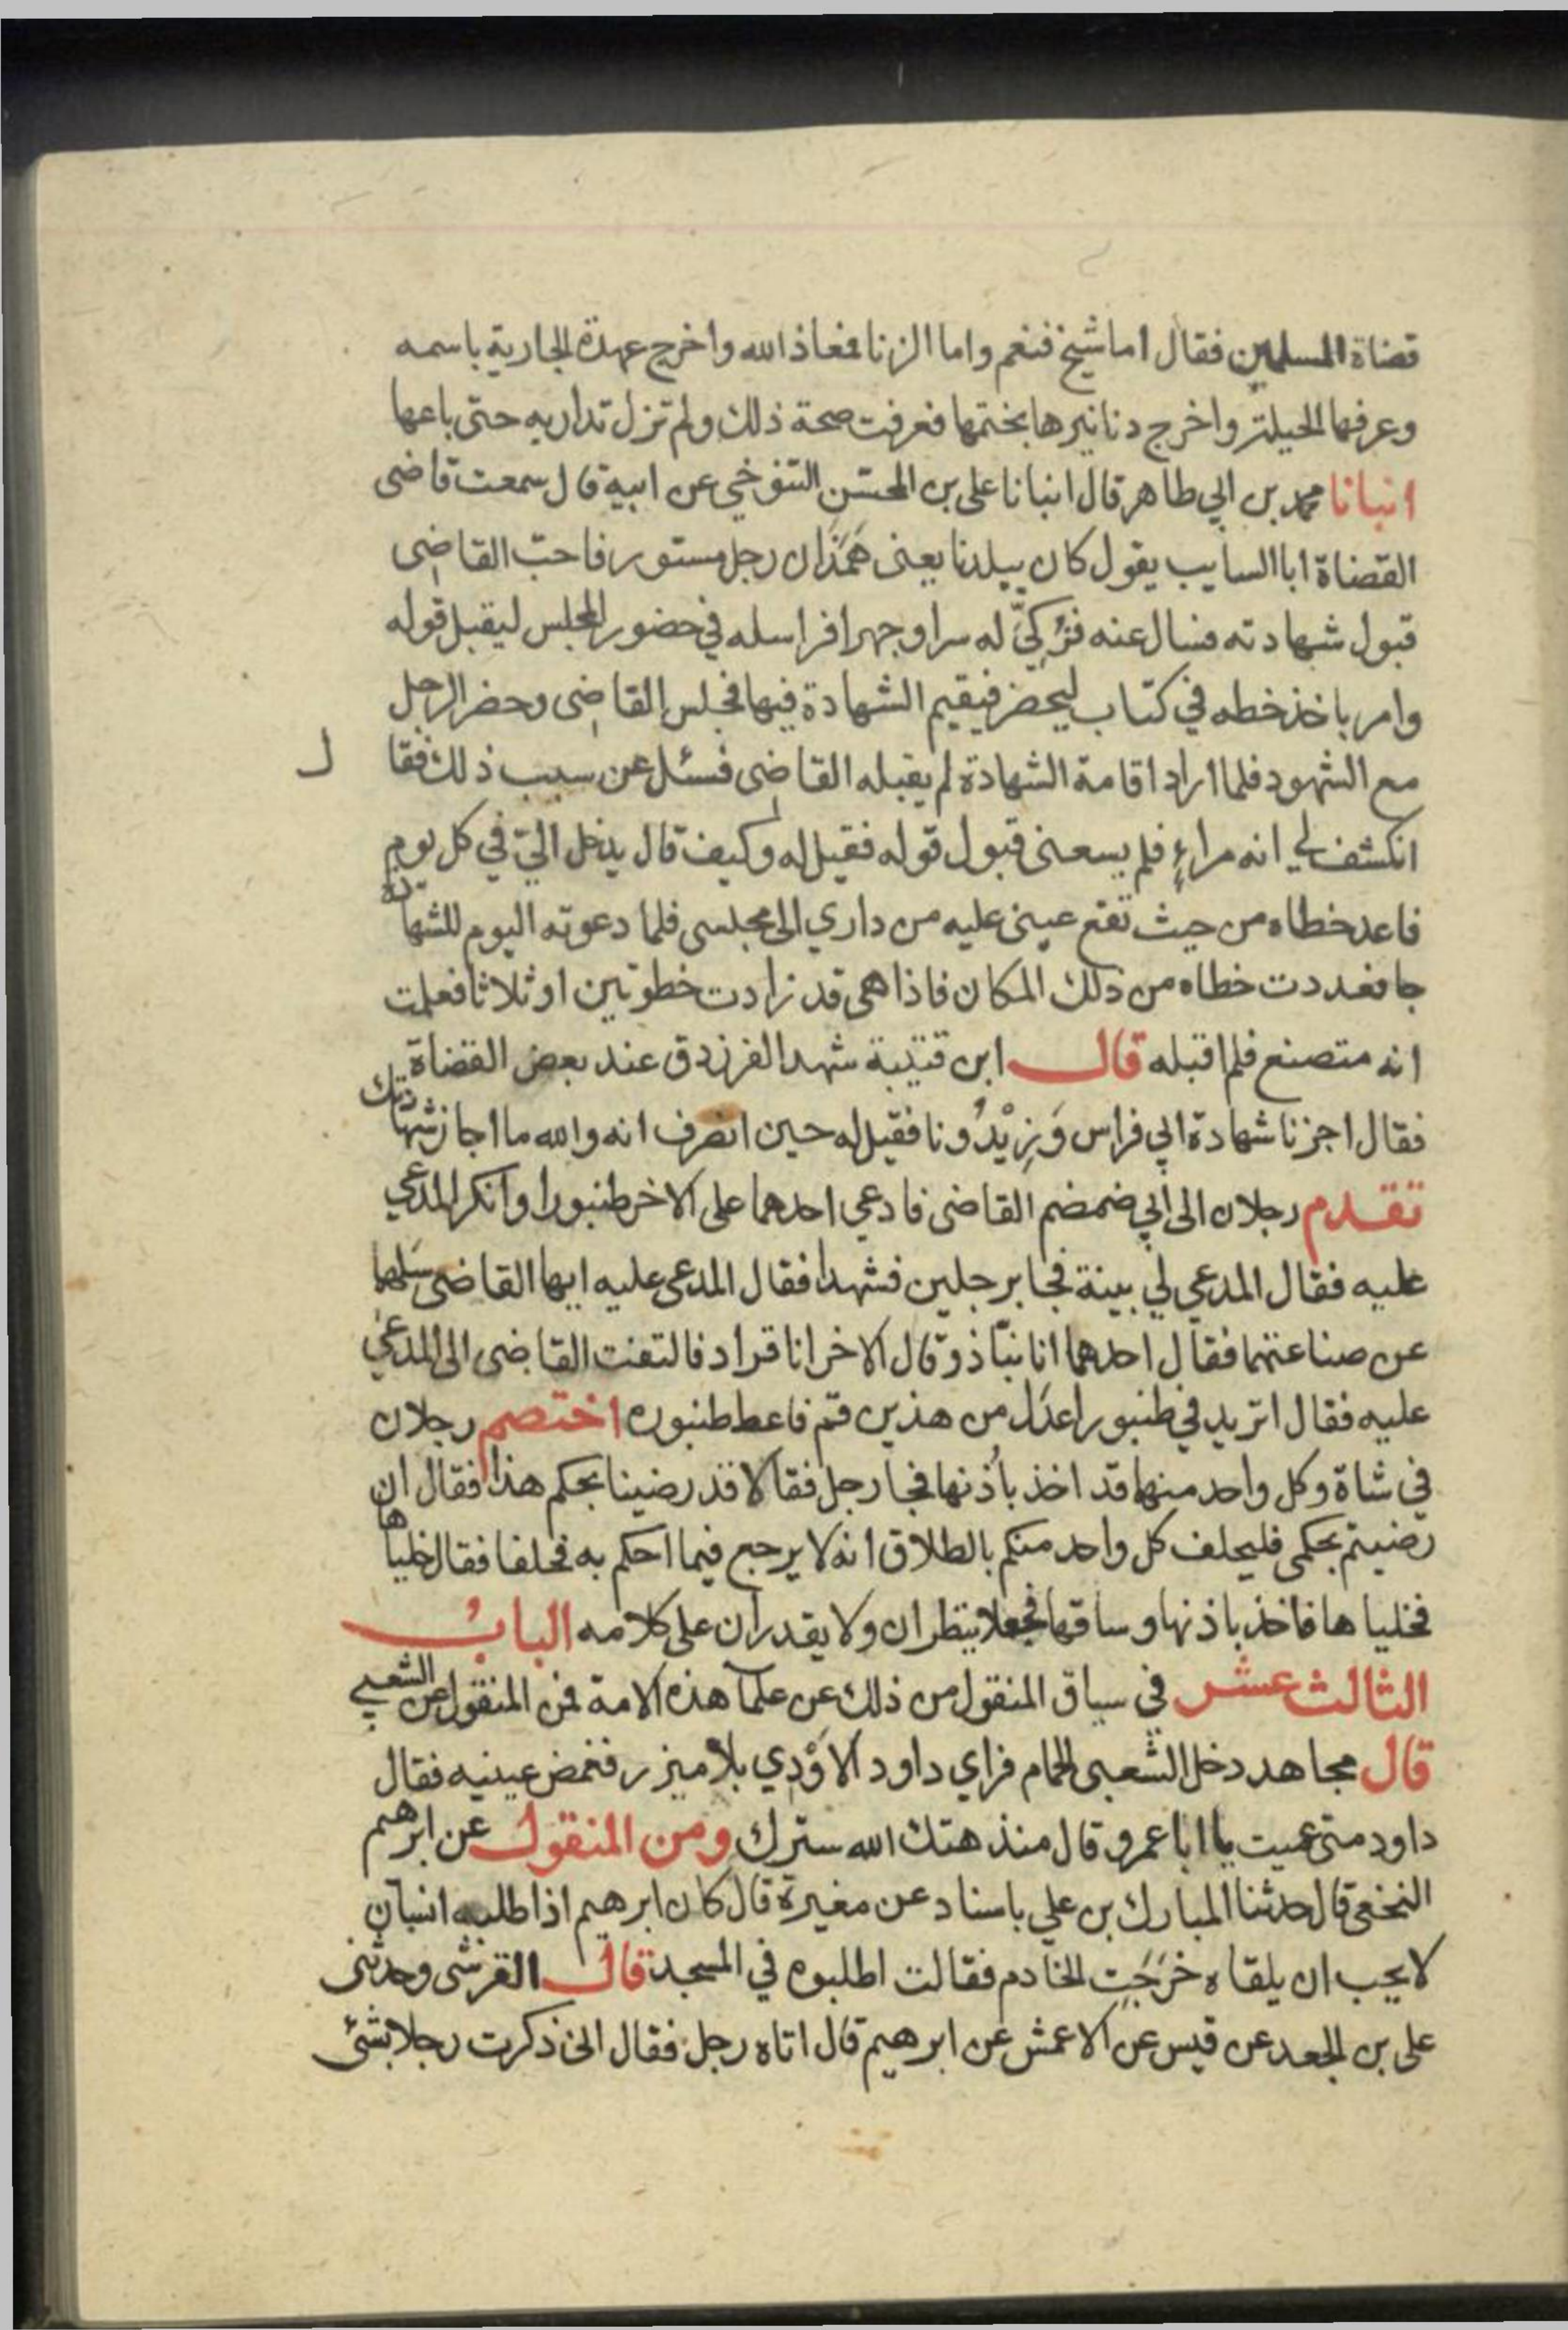 قضاة المسلمين فقال اما شيخ فنعم واما الزنا فمعاذ الله واخرج عهدة الجارية باسمه
وعرفها الحيلة واخرج دنانيرها بختمها فعرفت صحة ذلك ولم تزل تداريه حتى باعها
انبانا محمد بن ابي طاهر قال انبانا على بن المحسّن التنوخي عن ابيه قال سمعت قاضى
القضاة ابا السايب يقول كان ببلدنا يعنى هَمَذَان رجل مستور فاحبّ القاضى
قبول شهادته فسال عنه فزُكِيَّ له سرا وجهرا فراسله في حضور المجلس ليقبل قوله
وامر باخذ خطه في كتاب ليحضر فيقيم الشهادة فيها فجلس القاضى وحضر الرجل
مع الشهود فلما اراد اقامة الشهادة لم يقبله القاضى فسئل عن سبب ذلك فقا ل
انكشف لي انه مراءٍ فلم يسعنى قبول قوله فقيل له وكيف قال يدخل اليّ في كل يوم
فاعد خطاه من حيث تقع عينى عليه من داري الى مجلسى فلما دعوته اليوم للشهادة
جا فعددت خطاه من ذلك المكان فاذا هى قد زادت خطوتين او ثلاثا فعلمت
انه متصنع فلم اقبله قال ابن قتيبة شهد الفرزدق عند بعض القضاة
فقال اجزنا شهادة ابي فراس وَزِيْدُونا فقيل له حين انصرف انه والله ما اجاز شهادتك
تقدم رجلان الى ابي ضمضم القاضى فادعي احدهما على الاخر طنبورا وانكر المدعي
عليه فقال المدعي لي بينة فجا برجلين فشهدا فقال المدعى عليه ايها القاضى سَلهما
عن صناعتهما فقال احدهما انا نبّاذ وقال الاخر انا قراد فالتفت القاضى الى المدعي
عليه فقال اتريد في طنبور اعدَل من هذين قم فاعط طنبوره اختصم رجلان
في شاة وكل واحد منهما قد اخذ باُذنها فجا رجل فقالا قد رضينا بحكم هذا فقال ان
رضيتم بحكمى فليحلف كل واحد منكم بالطلاق انه لا يرجع فيما احكم به فحلفا فقال خلياها
فخلياها فاخذ باذنها وساقها فجعلا ينظران ولا يقدران على كلامه البابُ
الثالث عشر في سياق المنقول من ذلك عن علمآ هذه الامة فمن المنقول عن الشعبي
قال مجاهد دخل الشعبى الحمام فراي داود الاوْدِي بلا ميزر فغمض عينيه فقال
داود متى عميت يا ابا عمرو قال منذ هتك الله سترك ومن المنقول عن ابرهيم
النخعى قال حدثنا المبارك بن علي باسناد عن مغيرة قال كان ابرهيم اذا طلبه انسان
لا يحب ان يلقاه خرَجَت الخادم فقالت اطلبوه في المسجد قال القرشى وحدثنى
على بن الجعد عن قيس عن الاعمش عن ابرهيم قال اتاه رجل فقال انى ذكرت رجلا بشئ